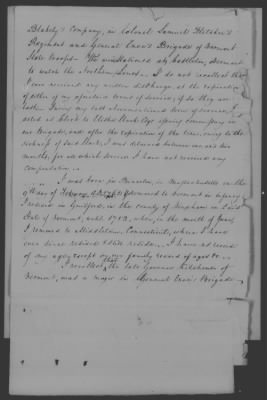 Blakely's Company, in Colonel Samuel Fletcher's
Regiment and General Enos's Brigade of Vermont
State troops. We were stationed at Castleton, Vermont
to watch the Northern I do not recollect that
I ever received any written discharge, at the expiration
of either of my aforesaid terms of service; if so they are
lost. During my last mentioned term of service, I
acted as Clerk to Elisha Clark Esqr
our Brigade, and after the expiration of the time, owing to the
sickness of said Clark, I was detained between one and two
months, for which service I have not received any
compensation.
I was born in in Massachusetts on the
day of removed to Vermont in infancy
I resided in Guilford, in the county of Windham in said
State of Vermont, until 1783, when, in the month of June
I removed to Middletown, Connecticut, where I have
ever since resided & still reside. I have no record
of my age, except in my family record of aged
I recollect that the late Governor Chittenden of
Vermont, was a major in General Enos's Brigade